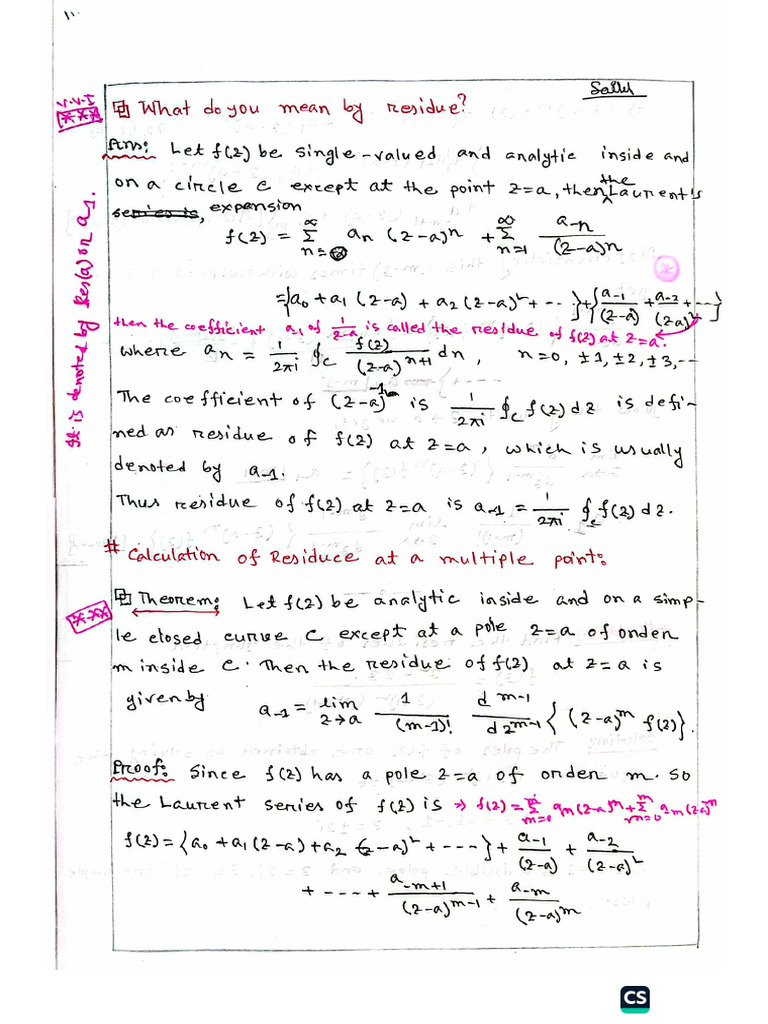 Sat
V.V.I
***
What do you mean by residue?
Ans: Let f(z) be single-valued and analytic inside and
on a circle c except at the point z=a, then the Laurent's
series is, expansion
f(z) = ∞Σn=0 an (z-a)^n + ∞Σn=1 a-n/(z-a)^n
= {a0 + a1 (z-a) + a2 (z-a)² + -- } + {a-1/(z-a) + a-2/(z-a)² + ---}
then the coefficient a1 of 1/z-a is called the residue of f(z) at z=a.
where an = 1/2πi ∮c f(z)/(z-a)^n+1 dn, n=0, ±1, ±2, ±3, --
The coefficient of (z-a)^-1 is 1/2πi ∮c f(z) dz is defi-
ned as residue of f(z) at z=a, which is usually
denoted by a-1.
Thus residue of f(z) at z=a is a-1 = 1/2πi ∮c f(z) dz.
It is denoted by Res(a) or a-1.
# Calculation of Residuce at a multiple point:
*-**
Theorem: Let f(z) be analytic inside and on a simp-
le closed curve C except at a pole z=a of order
m inside C. Then the residue of f(z) at z=a is
given by a-1 = lim z→a 1/(m-1)! d^m-1/dz^m-1 { (z-a)^m f(z)}.
Proof: Since f(z) has a pole z=a of order m. So
the Laurent series of f(z) is ⇒ f(z) = Σm=0 am(z-a)^m + mΣm=0 a-m(za)^m
f(z) = {a0 + a1 (z-a) + a2 (z-a)² + ---} + a-1/(z-a) + a-2/(z-a)²
+ ---- + a-m+1/(z-a)^m-1 + a-m/(z-a)^m
CS